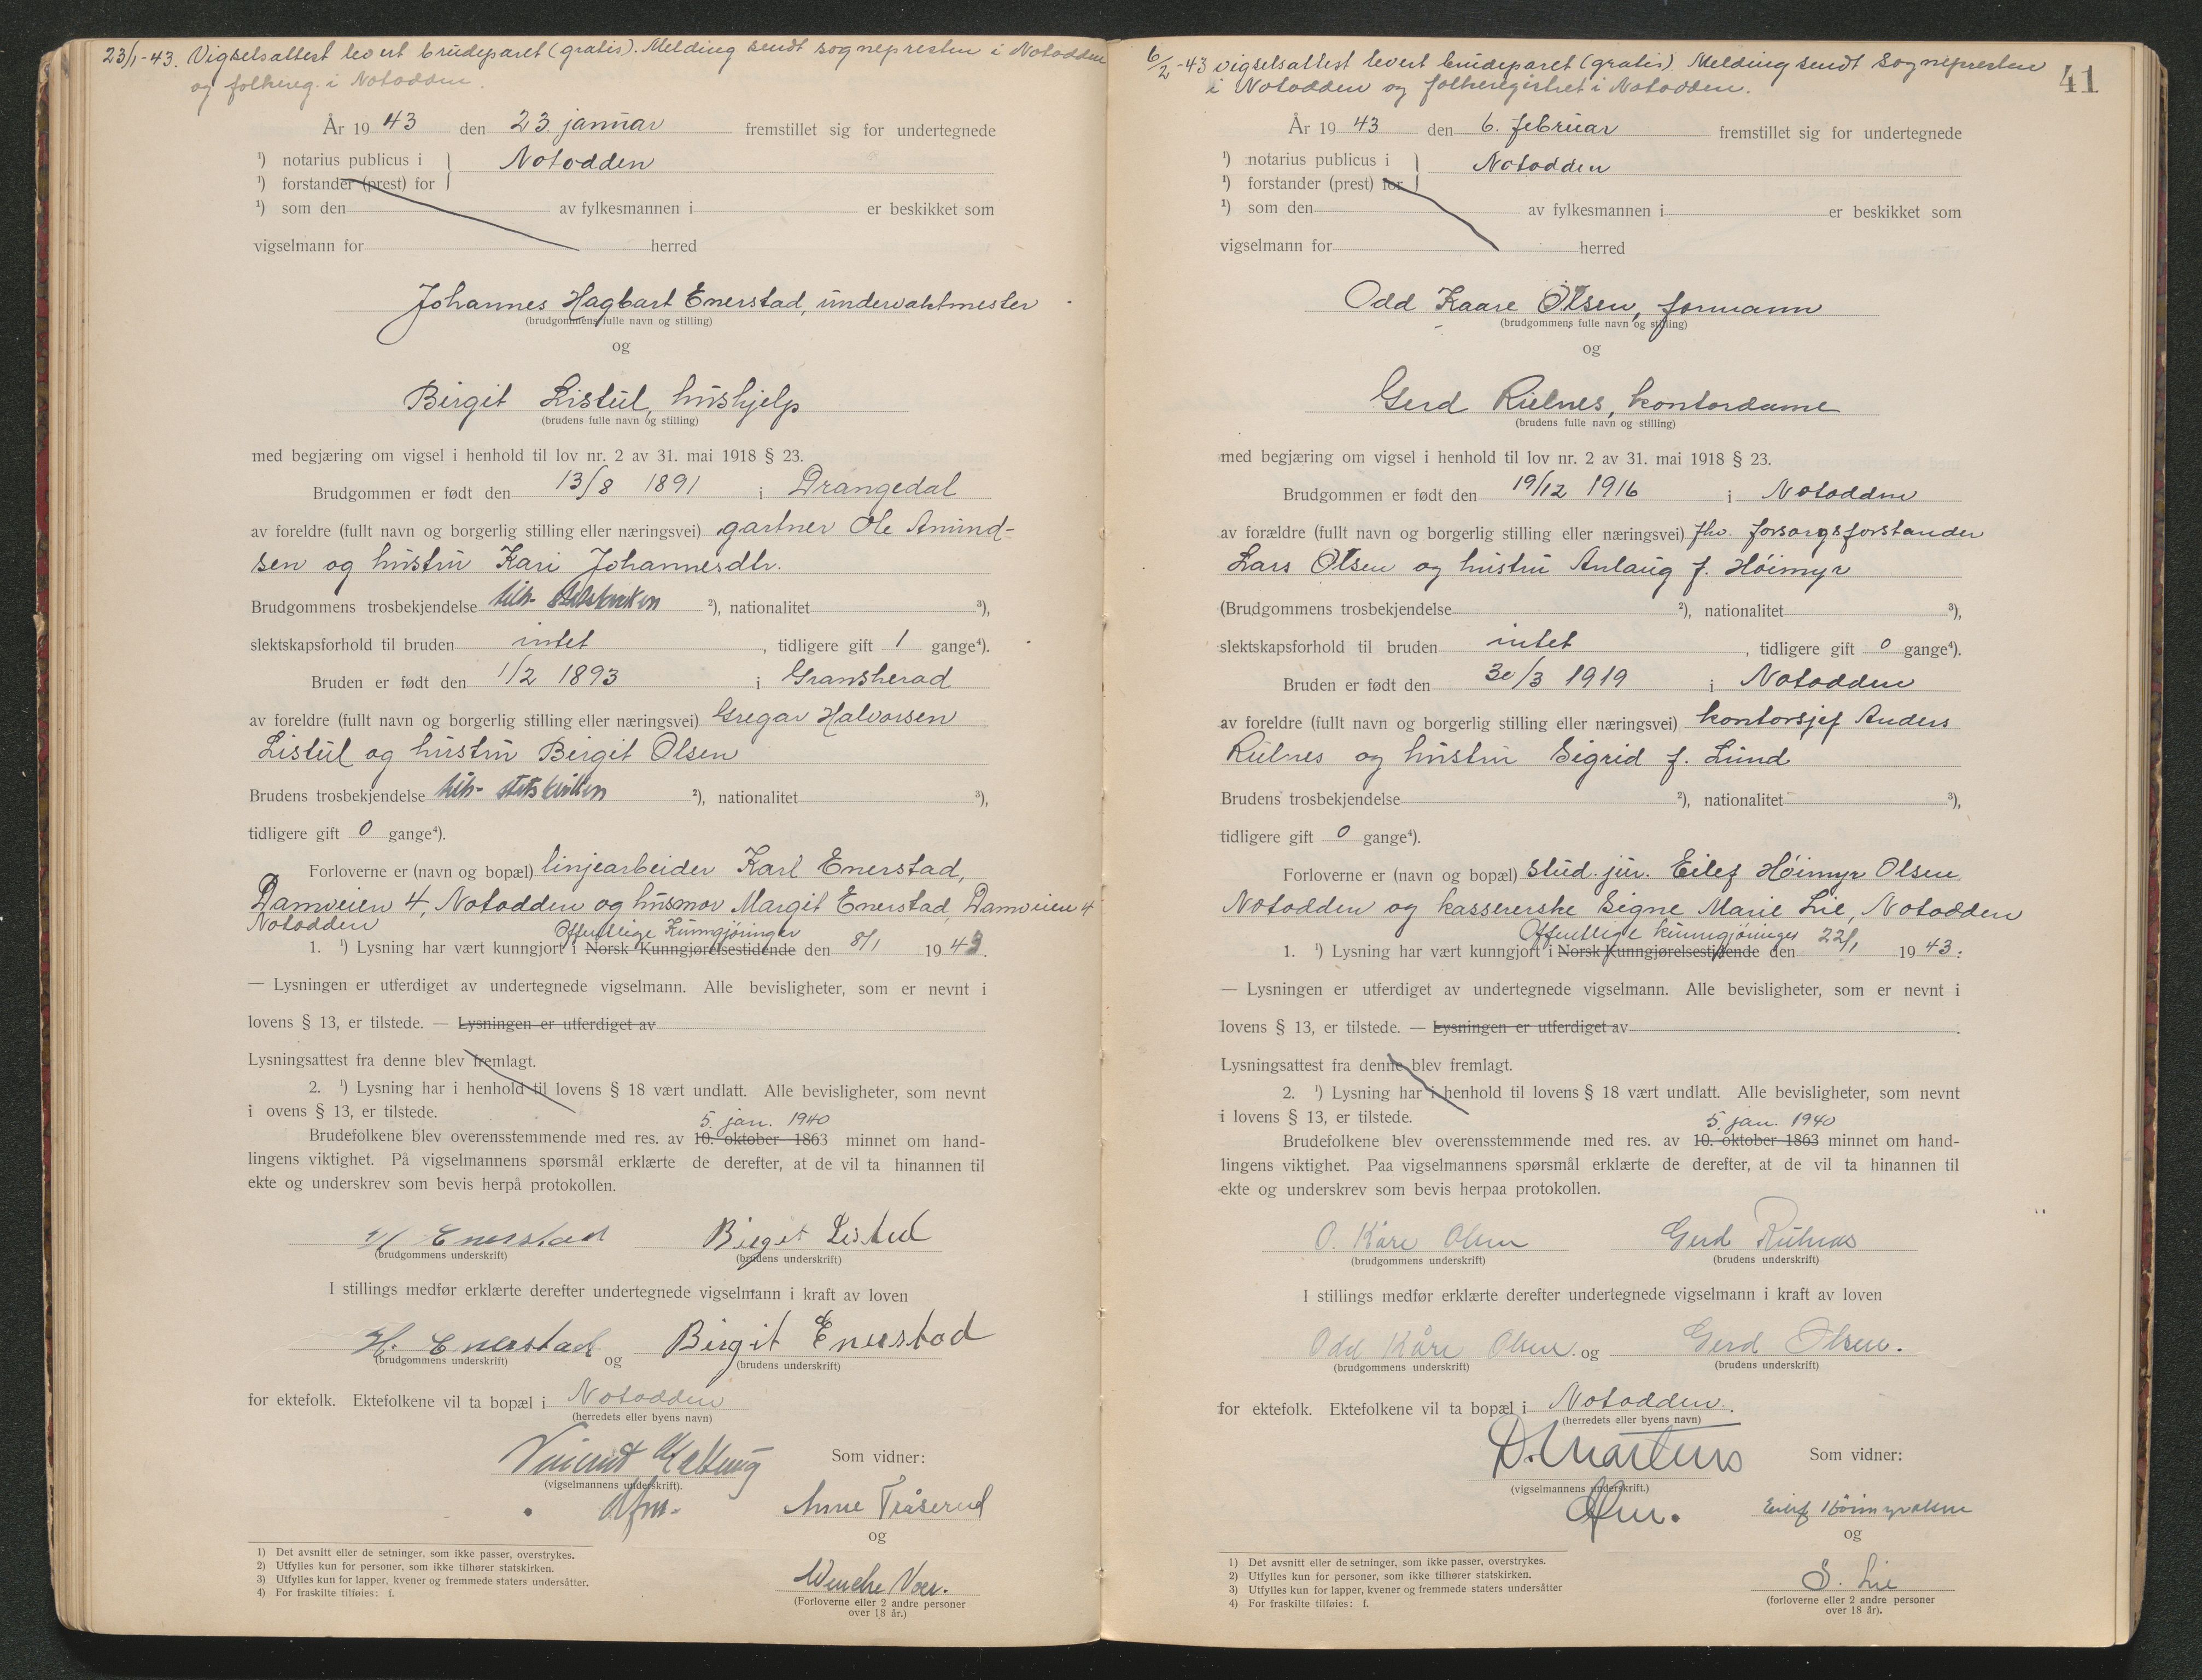 23/1-43. Vigselsattest levert brudeparet (gratis). Melding sendt sognepresten i Notodden
og folkereg. i Notodden.
År 19 43 den 23. januar fremstillet sig for undertegnede
¹) notarius publicus i } Notodden
¹) forstander (prest) for
¹) som den av fylkesmannen i er beskikket som
vigselmann for herred
Johannes Hagbart Enerstad, undervaktmester
(brudgommens fulle navn og stilling)
og
Birgit Listul, hushjelp
(brudens fulle navn og stilling)
med begjæring om vigsel i henhold til lov nr. 2 av 31. mai 1918 § 23.
Brudgommen er født den 13/8 1891 i Drangedal
av foreldre (fullt navn og borgerlig stilling eller næringsvei) gartner Ole Amund-
sen og hustru Kari Johannesdtr.
Brudgommens trosbekjendelse tilh. statskirken ²), nationalitet ³),
slektskapsforhold til bruden intet, tidligere gift 1 gange⁴).
Bruden er født den 1/2 1893 i Gransherad
av foreldre (fullt navn og borgerlig stilling eller næringsvei) Gregar Halvorsen
Listul og hustru Birgit Olsen
Brudens trosbekjendelse tilh. statskirken ²), nationalitet ³),
tidligere gift 0 gange⁴).
Forloverne er (navn og bopæl) linjearbeider Karl Enerstad,
Damveien 4, Notodden og husmor Margit Enerstad, Damveien 4
Notodden
Offentlige Kunngjøringer
1. ¹) Lysning har vært kunngjort i Norsk Kunngjørelsestidende den 8/1 19 43.
— Lysningen er utferdiget av undertegnede vigselmann. Alle bevisligheter, som er nevnt i
lovens § 13, er tilstede. — Lysningen er utferdiget av
Lysningsattest fra denne blev fremlagt.
2. ¹) Lysning har i henhold til lovens § 18 vært undlatt. Alle bevisligheter, som nevnt
i ovens § 13, er tilstede.
5. jan. 1940
Brudefolkene blev overensstemmende med res. av 10. oktober 1863 minnet om hand-
lingens viktighet. På vigselmannens spørsmål erklærte de derefter, at de vil ta hinannen til
ekte og underskrev som bevis herpå protokollen.
H Enerstad Birgit Listul
(brudgommens underskrift) (brudens underskrift)
I stillings medfør erklærte derefter undertegnede vigselmann i kraft av loven
H. Enerstad og Birgit Enerstad
(brudgommens underskrift) (brudens underskrift)
for ektefolk. Ektefolkene vil ta bopæl i Notodden
(herredets eller byens navn)
Som vidner:
(vigselmannens underskrift).
Anne Tråserud
og
Wenche Voer.
(Forloverne eller 2 andre personer
over 18 år.)
1) Det avsnitt eller de setninger, som ikke passer, overstrykes.
2) Utfylles kun for personer, som ikke tilhører statskirken.
3) Utfylles kun for lapper, kvener og fremmede staters undersåtter.
4) For fraskilte tilføies: f.
41
6/2-43 vigselsattest levert brudeparet (gratis) Melding sendt sognepresten
i Notodden og folkeregistret i Notodden.
År 19 43 den 6. februar fremstillet sig for undertegnede
¹) notarius publicus i } Notodden
¹) forstander (prest) for
¹) som den av fylkesmannen i er beskikket som
vigselmann for herred
Odd Kaare Olsen, formann
(brudgommens fulle navn og stilling)
og
Gerd Rulnes, kontordame
(brudens fulle navn og stilling)
med begjæring om vigsel i henhold til lov nr. 2 av 31. mai 1918 § 23.
Brudgommen er født den 19/12 1916 i Notodden
av forældre (fullt navn og borgerlig stilling eller næringsvei) fhv. forsorgsforstander
Lars Olsen og hustru Anlaug f. Høimyr
(Brudgommens trosbekjendelse ²), nationalitet ³),
slektskapsforhold til bruden intet, tidligere gift 0 gange⁴).
Bruden er født den 30/3 1919 i Notodden
av foreldre (fullt navn og borgerlig stilling eller næringsvei) kontorsjef Anders
Rulnes og hustru Sigrid f. Lund
Brudens trosbekjendelse ²), nationalitet ³),
tidligere gift 0 gange⁴).
Forloverne er (navn og bopæl) stud. jur. Eilef Høimyr Olsen
Notodden og kassererske Signe Marie Lie, Notodden
Offentlige kunngjøringer
1. ¹) Lysning har vært kunngjort i Norsk Kunngjørelsestidende den 22/1 19 43.
— Lysningen er utferdiget av undertegnede vigselmann. Alle bevisligheter, som er nevnt i
lovens § 13, er tilstede. — Lysningen er utferdiget av
Lysningsattest fra denne blev fremlagt.
2. ¹) Lysning har i henhold til lovens § 18 vært undlatt. Alle bevisligheter, som nevnt
i lovens § 13, er tilstede.
5. jan. 1940
Brudefolkene blev overensstemmende med res. av 10. oktober 1863 minnet om hand-
lingens viktighet. Paa vigselmannens spørsmål erklærte de derefter, at de vil ta hinannen til
ekte og underskrev som bevis herpaa protokollen.
O. Kåre Olsen Gerd Rulnes
(brudgommens underskrift) (brudens underskrift)
I stillings medfør erklærte derefter undertegnede vigselmann i kraft av loven
Odd Kåre Olsen og Gerd Olsen.
(brudgommens underskrift) (brudens underskrift)
for ektefolk. Ektefolkene vil ta bopæl i Notodden.
(herredets eller byens navn)
D. Martens Som vidner:
(vigselmannens underskrift.)
Eilef Höimyr Olsen
og
S. Lie
(forloverne eller 2 andre personer
over 18 år).
1) Det avsnitt eller de setninger, som ikke passer, overstrykes.
2) Utfylles kun for personer, som ikke tilhører statskirken.
3) Utfylles kun for lapper, kvener og fremmede staters undersåtter
4) For fraskilte tilføies: f.